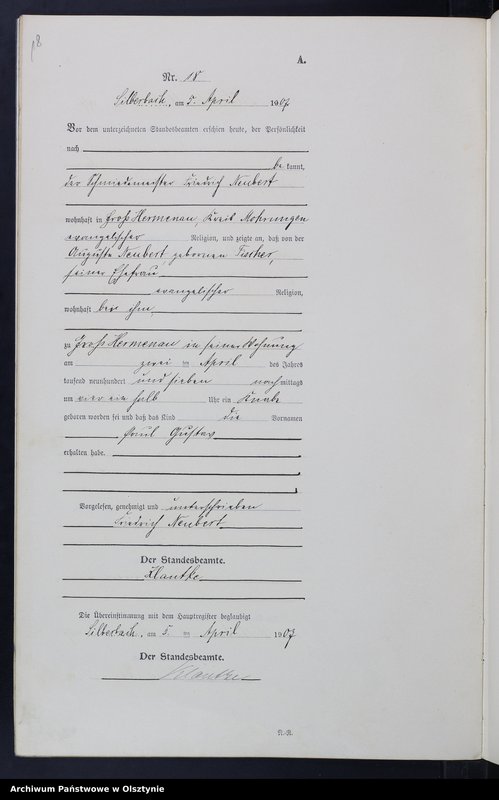 18
A.
Nr. 18
Silberbach, am 5. April 1907
Vor dem unterzeichneten Standesbeamten erschien heute, der Persönlichkeit
nach
be kannt,
der Schmiedemeister Friedrich Neubert
wohnhaft in Groß Hermenau, Kreis Mohrungen
evangelischer Religion, und zeigte an, daß von der
Auguste Neubert gebornen Fischer,
seiner Ehefrau
evangelischer Religion,
wohnhaft bei ihm,
zu Groß Hermenau in seiner Wohnung
am zwei ten April des Jahres
tausend neunhundert und sieben nach mittags
um vier ein halb Uhr ein Knabe
geboren worden sei und daß das Kind die Vornamen
Paul Gustav
erhalten habe.
Vorgelesen, genehmigt und unterschrieben
Friedrich Neubert
Der Standesbeamte.
Klautke
Die Übereinstimmung mit dem Hauptregister beglaubigt
Silberbach, am 5. ten April 1907
Der Standesbeamte.
Klautke
Archiwum Państwowe w Olsztynie